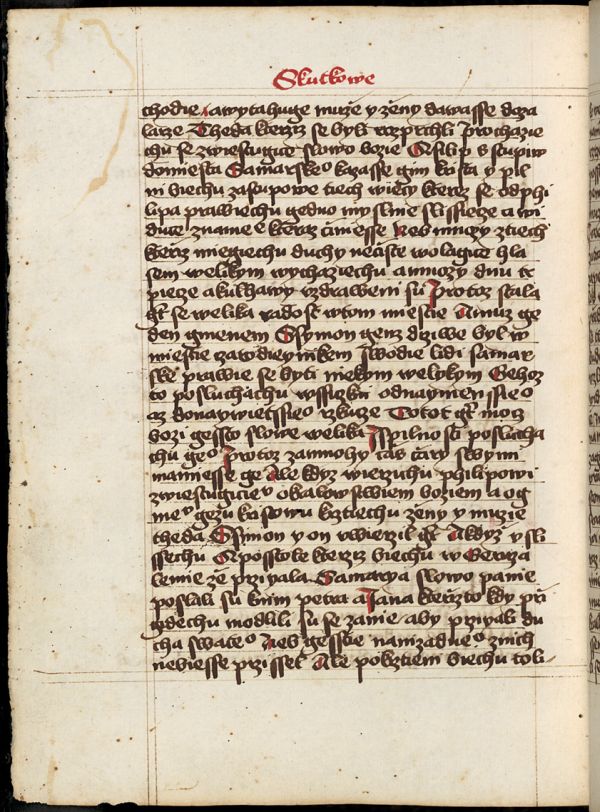 Skutkowe
chodie awytahuge muze y zeny dawasse doza
larze Theda kterziz se byli rozprchli Prochazie
chu se zwiestugice slowo bozie Ale filip s stupiw
domiesta Samarskeo kazasse gim krista y pil
ni biechu zastupowe tiech wieczy kterez se od phi
lipa prawiechu gednomyslnie slissiecze a wi
duce znamee kteraz cziniesse Nebo mnozy ztiech
kterziz miegiechu duchy neciste wolagice hla
sem welikym wychaziechu a mnozy dnu tr
piecze a kulhawy vzdraweni su Protoz stala
gt se welika radost wtom miestie A muz ge
den gmenem Ssymon genz drziwe byl w
miestie czarodieynikem swodie lidi samar
ske prawie se byti niekym welykym Gehoz
to posluchachu wssiczkni odnaymenssieo
az donaywietssieo rzkuze Totot gt mocz
bozi gessto slowe welika Jspilnosti poslucha
chu geo Protoz zamnohy czas czary swymi
mamiesse ge Ale kdyz wierzichu philipowi
zwiestugicieu o kralowstwiem boziem a o g
meu gezu kristowu krztiechu zeny y muzie
theda Ssimon y on vwierzil gt A kdyz vsli
ssechu Apposstole kterziz biechu w Geruza
lemie ze przigala Samarya slowo panie
poslali su knim petra a Jana kterizto kdy pri
gdechu modlili su se zanie aby przigali du
cha swateo Neb gesscie nanizadneo znich
nebiesse przissel Ale pokrztieni biechu toli